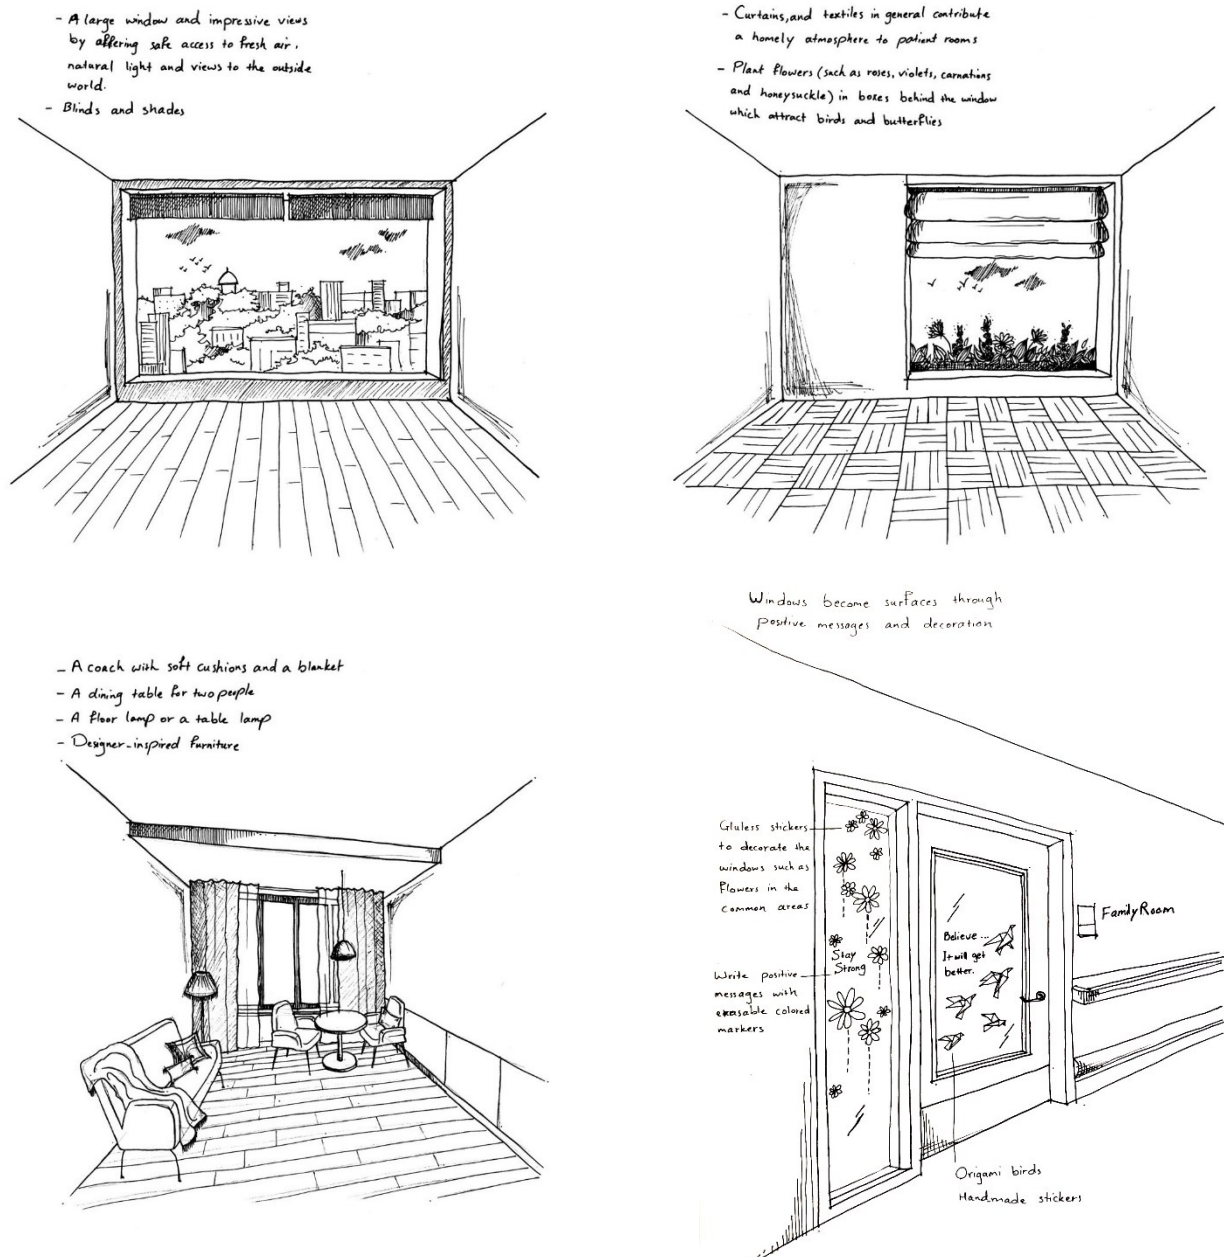 - A large window and impressive views
by offering safe access to fresh air,
natural light and views to the outside
world.
- Blinds and shades
- Curtains, and textiles in general contribute
a homely atmosphere to patient rooms
- Plant flowers (such as roses, violets, carnations
and honeysuckle) in boxes behind the window
which attract birds and butterflies
- A coach with soft cushions and a blanket
- A dining table for two people
- A floor lamp or a table lamp
- Designer-inspired furniture
Windows become surfaces through
positive messages and decoration
Glulers stickers
to decorate the
windows such as
flowers in the
common areas
Stay
Strong
Write positive
messages with
erasable colored
markers
Believe...
It will get
better.
Family Room
Origami birds
Handmade stickers